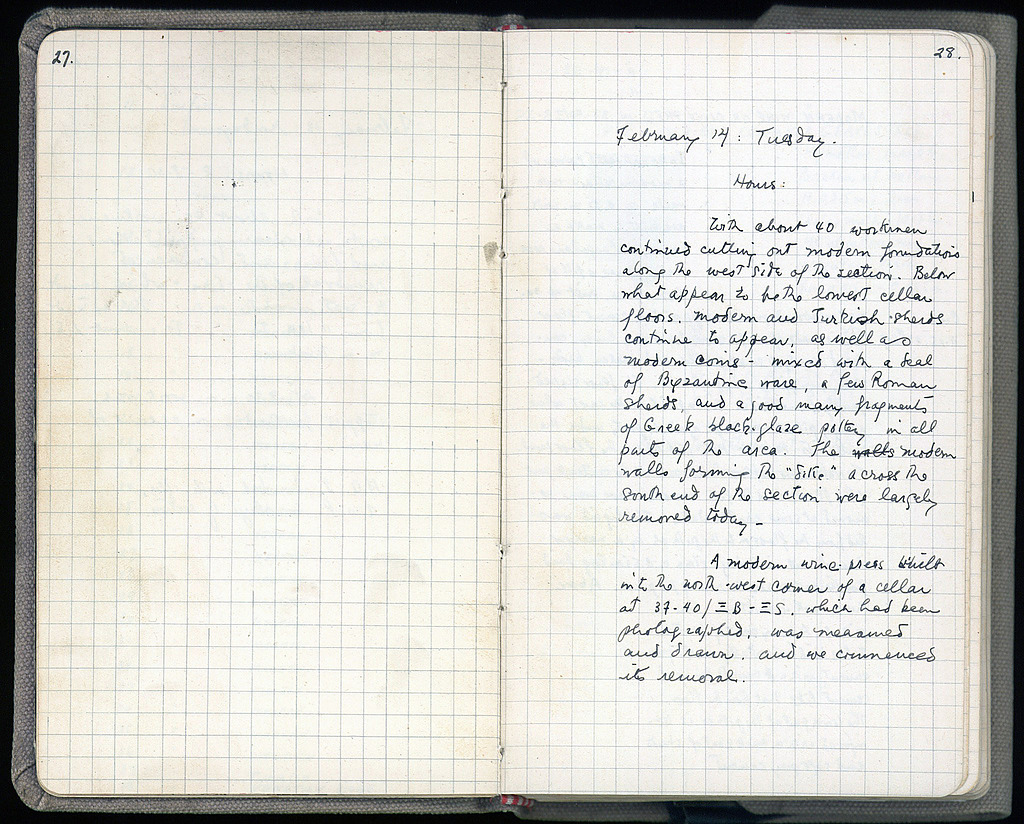 27.
28.
February 14: Tuesday.
Hours:
With about 40 workmen
continued cutting out modern foundations
along the west side of the section. Below
what appear to be the lowest cellar
floors. modern and Turkish sherds
continue to appear, as well as
modern coins - mixed with a deal
of Byzantine ware, a few Roman
sherds, and a good many fragments
of Greek black-glaze pottery in all
parts of the area. The walls modern
walls forming the "dike" across the
south end of the section were largely
removed today -
A modern wine-press built
into the north-west corner of a cellar
at 37-40/ΞB-ΞS, which had been
photographed, was measured
and drawn, and we commenced
its removal.